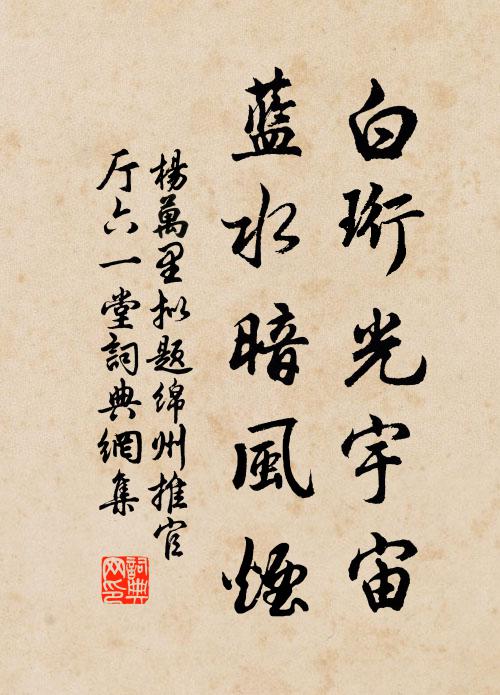 白珩光宇宙
藍水暗風煙
楊萬里拟题绵州推官
厅六一堂詞典網集
詞典网印